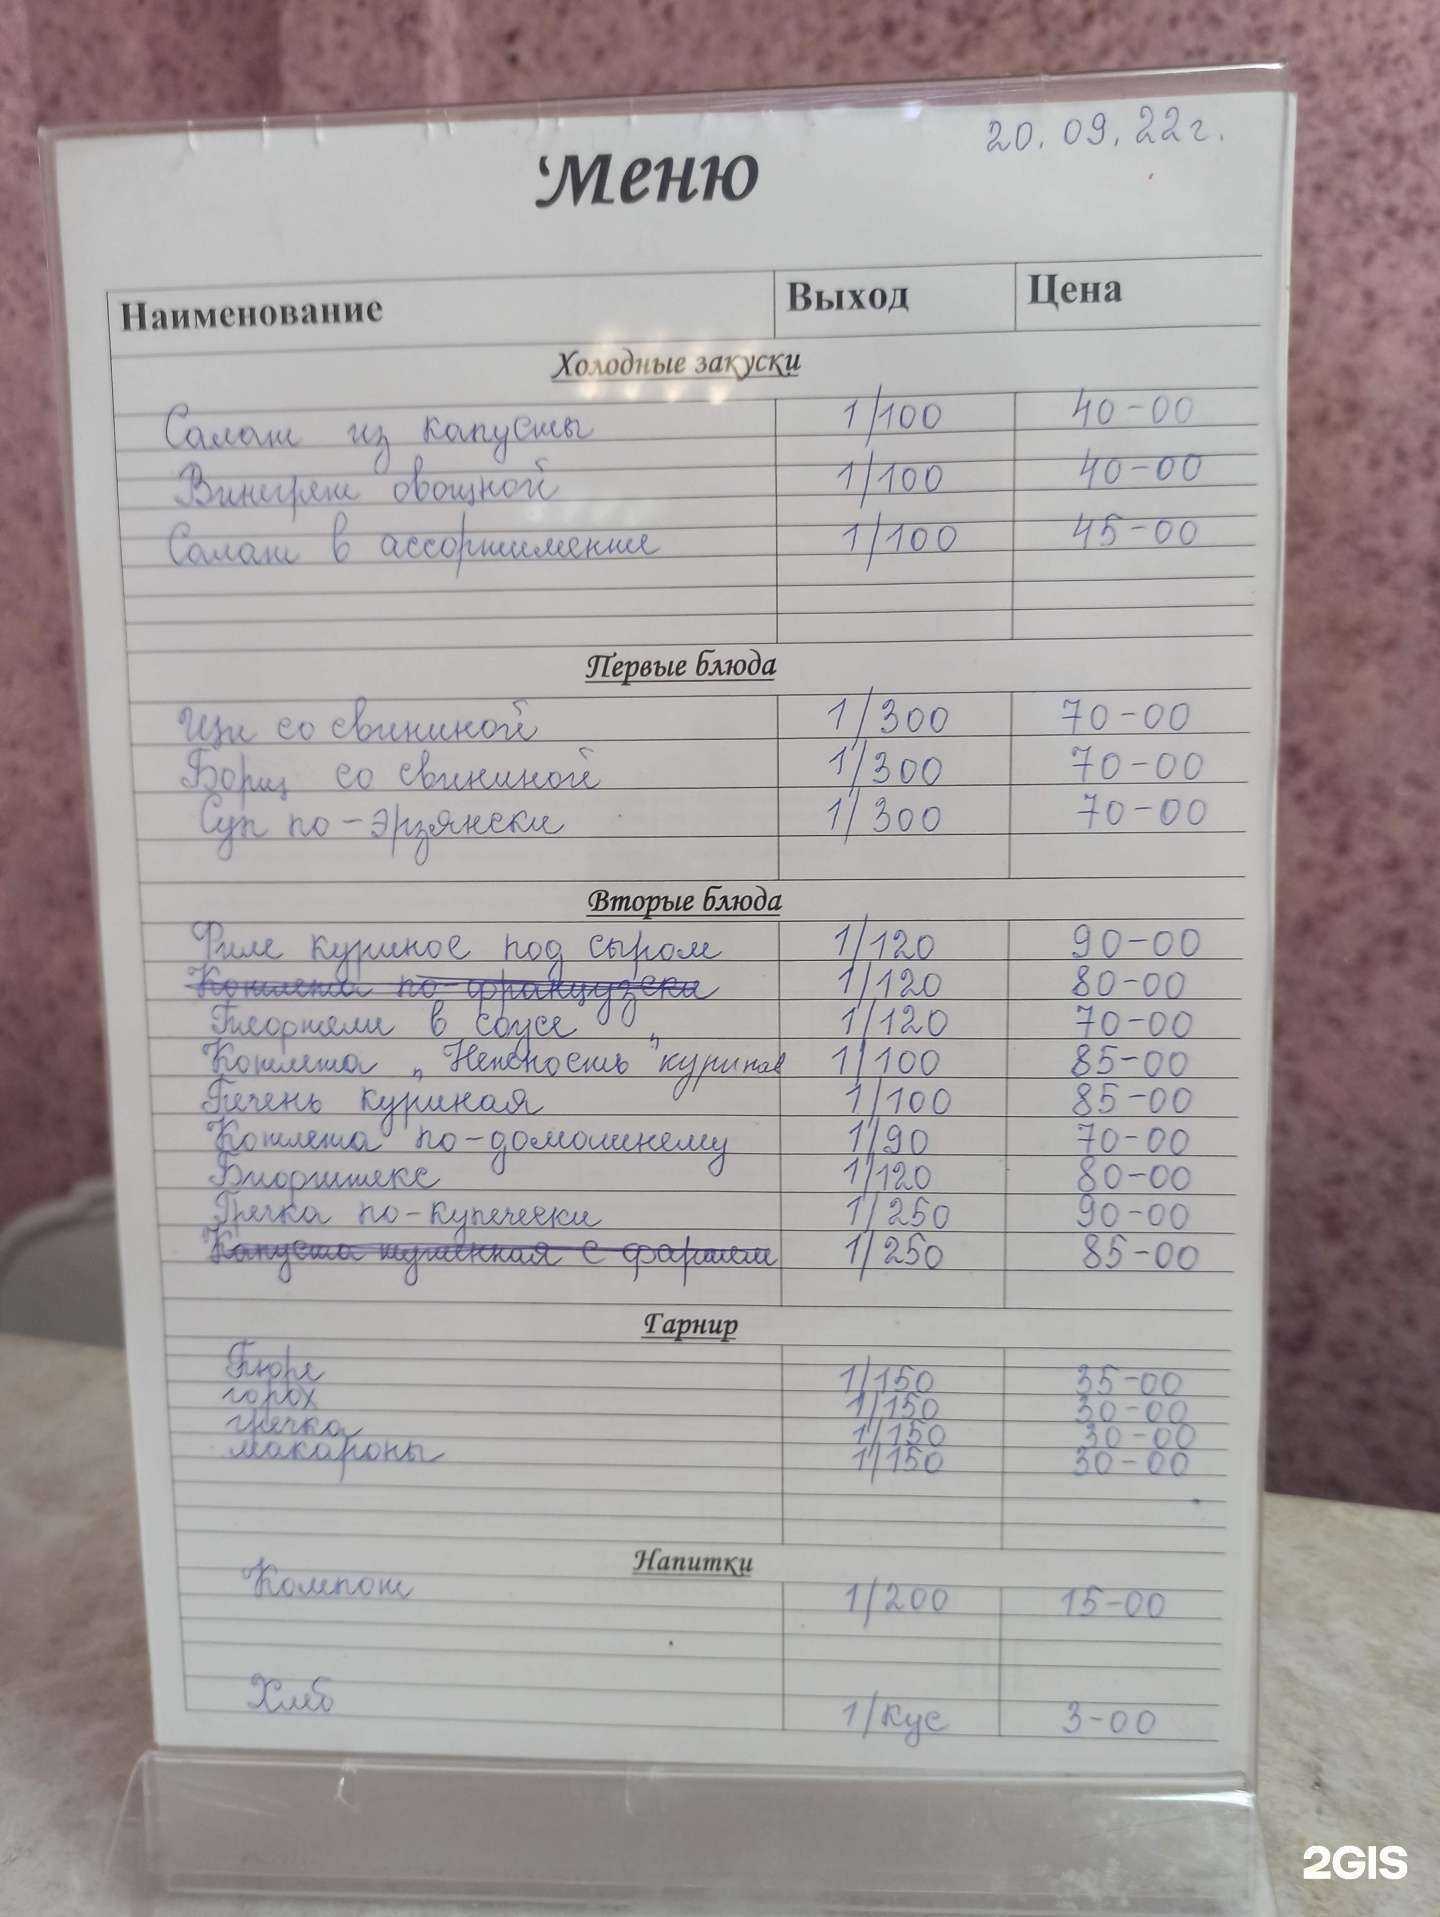 20.09.22г.
Меню
Наименование Выход Цена
Холодные закуски
Салат из капусты 1/100 40-00
Винегрет овощной 1/100 40-00
Салат в ассортименте 1/100 45-00
Первые блюда
Щи со свининой 1/300 70-00
Борщ со свининой 1/300 70-00
Суп по-эрзянски 1/300 70-00
Вторые блюда
Филе куриное под сыром 1/120 90-00
Котлета по-французски 1/120 80-00
Тефтели в соусе 1/120 70-00
Котлета „Нежность" куриная 1/100 85-00
Печень куриная 1/100 85-00
Котлета по-домашнему 1/90 70-00
Бифштекс 1/120 80-00
Гречка по-купечески 1/250 90-00
Капуста тушенная с фаршем 1/250 85-00
Гарнир
Пюре 1/150 35-00
горох 1/150 30-00
гречка 1/150 30-00
макароны 1/150 30-00
Напитки
Компот 1/200 15-00
Хлеб 1/кус 3-00
2GIS